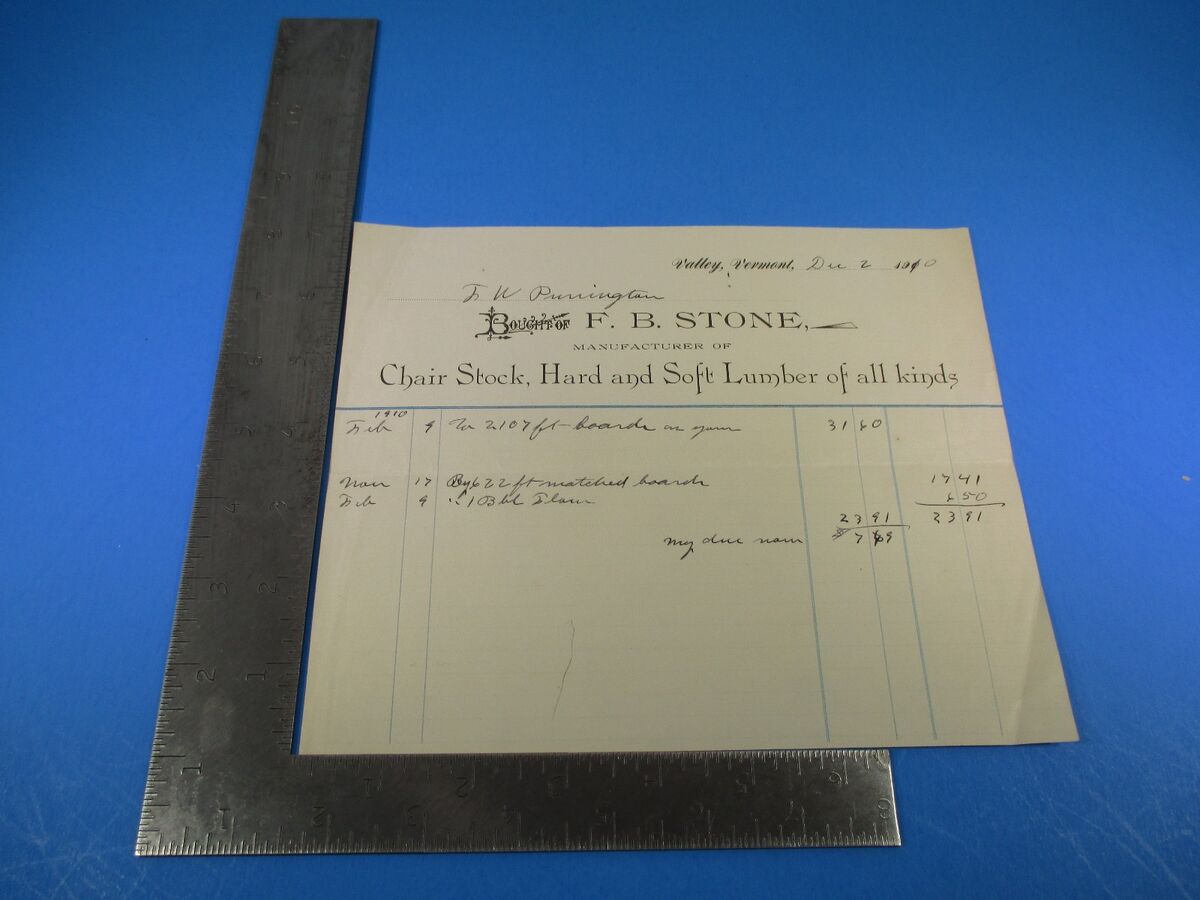 Valley, Vermont, Dec 2 1910
F W Purrington
BOUGHT OF F. B. STONE,
MANUFACTURER OF
Chair Stock, Hard and Soft Lumber of all kinds
1910
Feb 9 To 2107 ft boards 31 60
Nov 17 By 622 ft matched boards 17 41
Feb 9 " 1 Bbl Flour 6 50
23 91 23 91
my due now 7 69